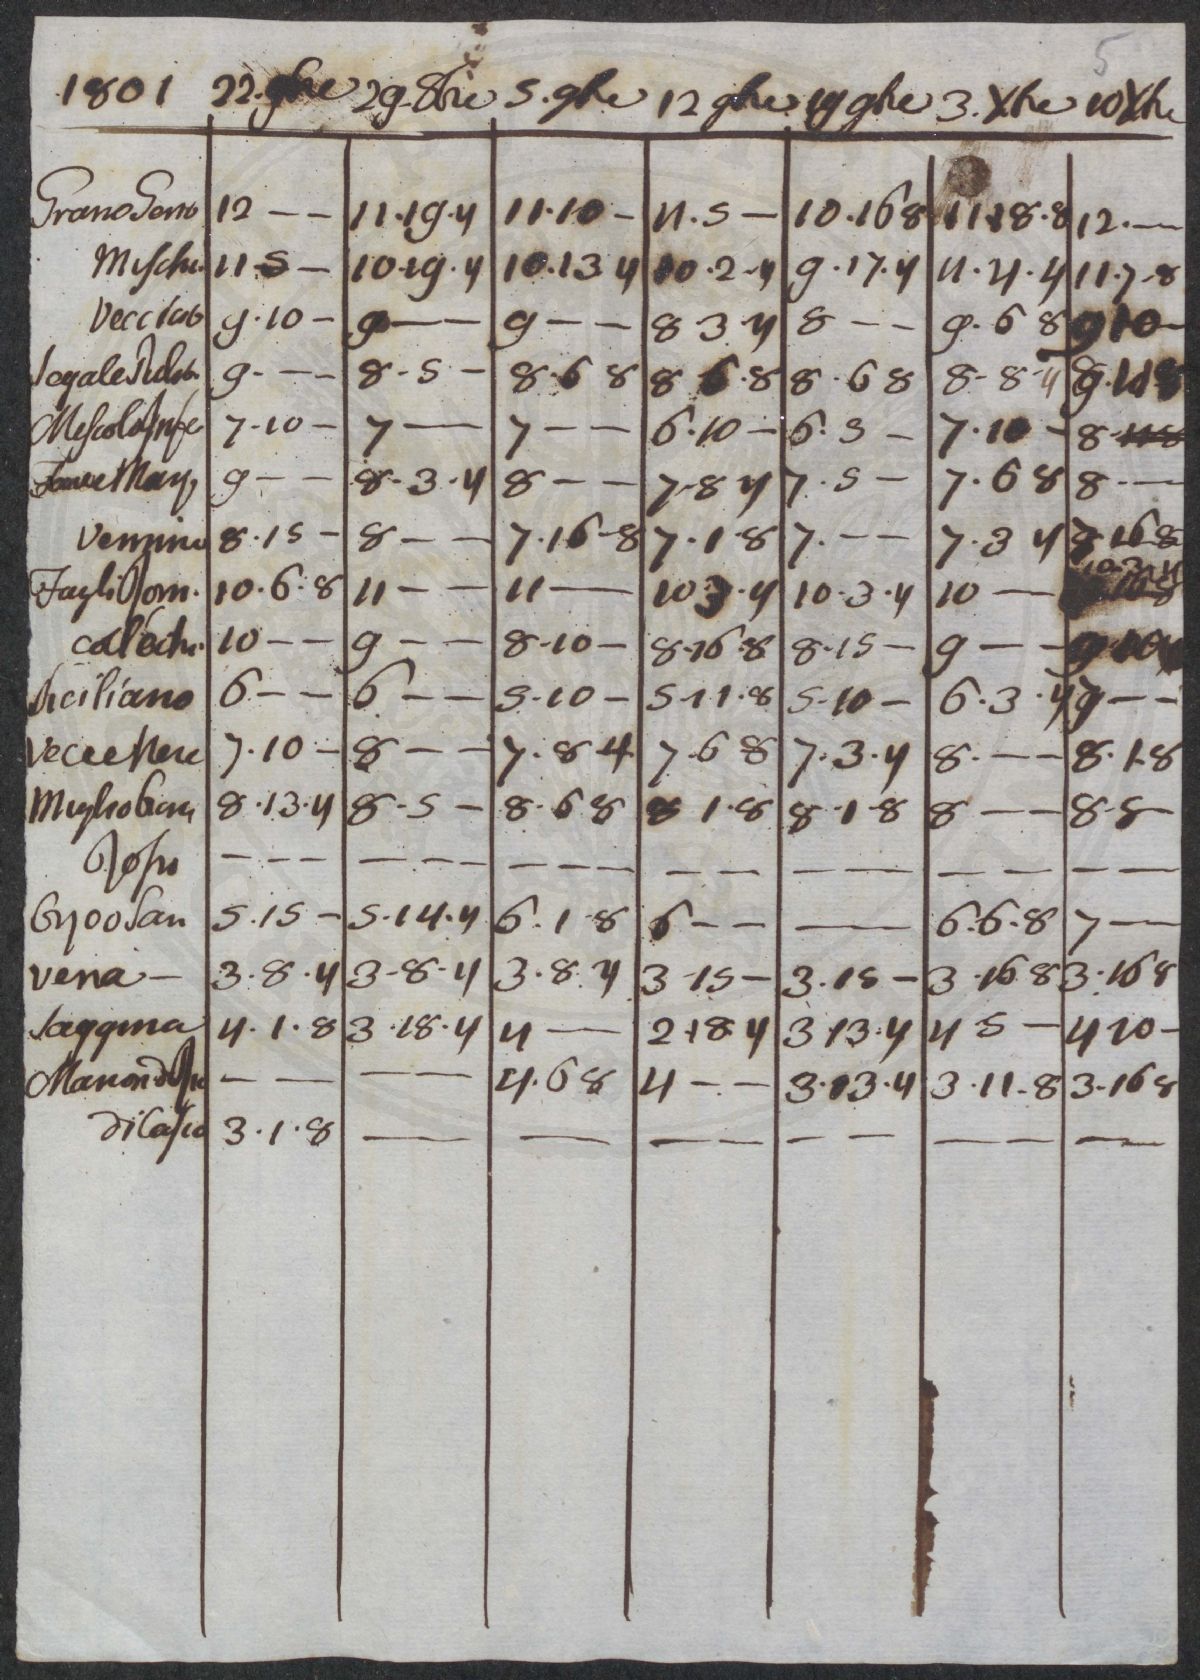 5
1801 22. 9bre 29. 8bre 5. 9bre 12 9bre 19 9bre 3. Xbre 10 Xbre
Grano Geno 12 — — 11.19.4 11.10 — 11.5 — 10.16 8 11 18.8 12. —
Mischi. 11 5 — 10.19.4 10.13 4 10.2.4 9.17.4 11.4.4 11.7.8
Vecciato 9.10 — 9 — — 9 — — 8 3.4 8 — — 9.6 8 9 10 —
Segale 9. — — 8.5 — 8.6 8 8 6.8 8.6 8 8.8 4 9.11 8
7.10 — 7 — 7 — — 6.10 — 6.5 — 7.10 — 8
Fave Marz 9 — — 8.3.4 8 — — 7.8 4 7.5 — 7.6 8 8. —
Vernine 8.15 — 8 — — 7.16.8 7.1.8 7. — — 7.3 4 7.16 8
Fagli Gom. 10.6.8 11 — — 11 — 10 3.4 10.3.4 10 — 10.3.4
coll'echi. 10 — — 9 — — 8.10 — 8.16.8 8.15 — 9 — — 9.10
Siciliano 6 — — 6 — — 5.10 — 5.11.8 5.10 — 6.3.4 9 — —
Vecce Nere 7.10 — 8 — — 7.8 4 7.6 8 7.3.4 8. — — 8.1.8
Miglio 8.13.4 8.5 — 8.6 8 8 1.8 8.1.8 8 — — 8.8 —
— — — — — — — — — — — — — — — — —
Orzo San 5.15 — 5.14.4 6.1.8 6 — — — 6.6.8 7 —
Vena — 3.8.4 3.8.4 3.8.4 3 15 — 3.15 — 3.16 8 3.16 8
Saggina 4.1.8 3.18.4 4 — 2 18 4 3 13.4 4 5 — 4 10 —
— — — — 4.6 8 4 — — 3.13.4 3.11.8 3.16 8
3.1.8 — — — — — — — — —